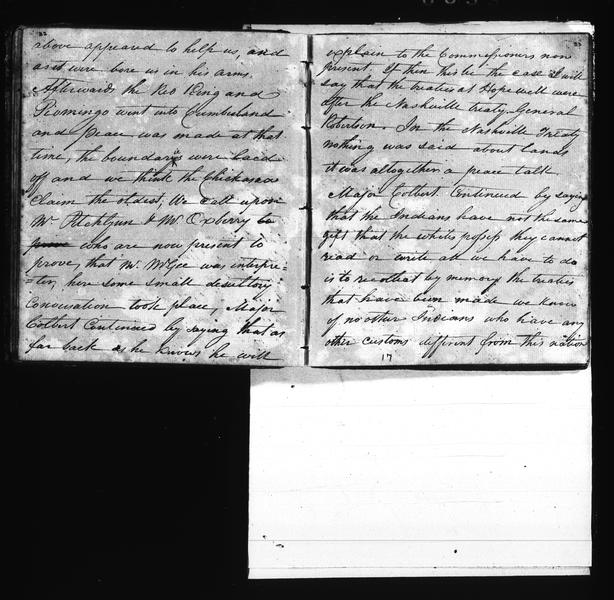 22
above appeared to help us, and
as it were bore us in his arms.
Afterwards the Red King and
Piomingo went into Cumberland
and peace was made at that
time, the boundaries were laid
off and we think the Chickasaw
Claim the oldest, We call upon
Mr. Pitchlynn & Mr. Oxberry to
who are now present to
prove that Mr. McGee was interpre=
=ter, here some small desultory
Conversation took place, Major
Colbert Continued by saying that as
far back as he knows he will
23
explain to the Commissioners now
present. If then this be the case I will
say that the treaties at Hopewell were
after the Nashville treaty General
Robertson. In the Nashville Treaty
nothing was said about lands
it was altogether a peace talk
Major Colbert Continued by saying
that the Indians have not the same
gift that the white possess they cannot
read or write all we have to do
is to read that by memory the treaties
that have been made we know
of no other Indians who have any
other customs different from this nation
17